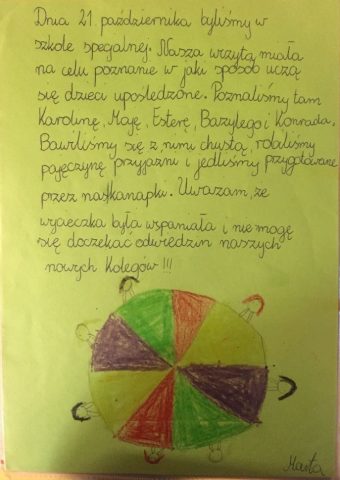 Dnia 21 października byliśmy w
szkole specjalnej. Nasza wizyta miała
na celu poznanie w jaki sposób uczą
się dzieci upośledzone. Poznaliśmy tam
Karolinę, Maję, Esterę, Bazylego i Konrada.
Bawiliśmy się z nimi chustą, robiliśmy
pajęczynę przyjaźni i jedliśmy przygotowane
przez nas kanapki. Uważam, że
wycieczka była wspaniała i nie mogę
się doczekać odwiedzin naszych
nowych kolegów !!!
Marta